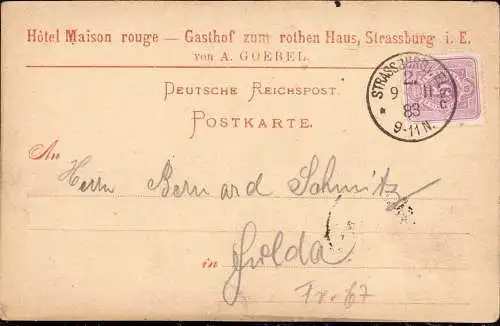 Hôtel Maison rouge — Gasthof zum rothen Haus, Strassburg i. E.
von A. GOEBEL.
DEUTSCHE REICHSPOST.
POSTKARTE.
STRASSBURG
9 11
83
9-11 N.
An
Herrn Bernard Schmitz
in Fulda
Fr. 67